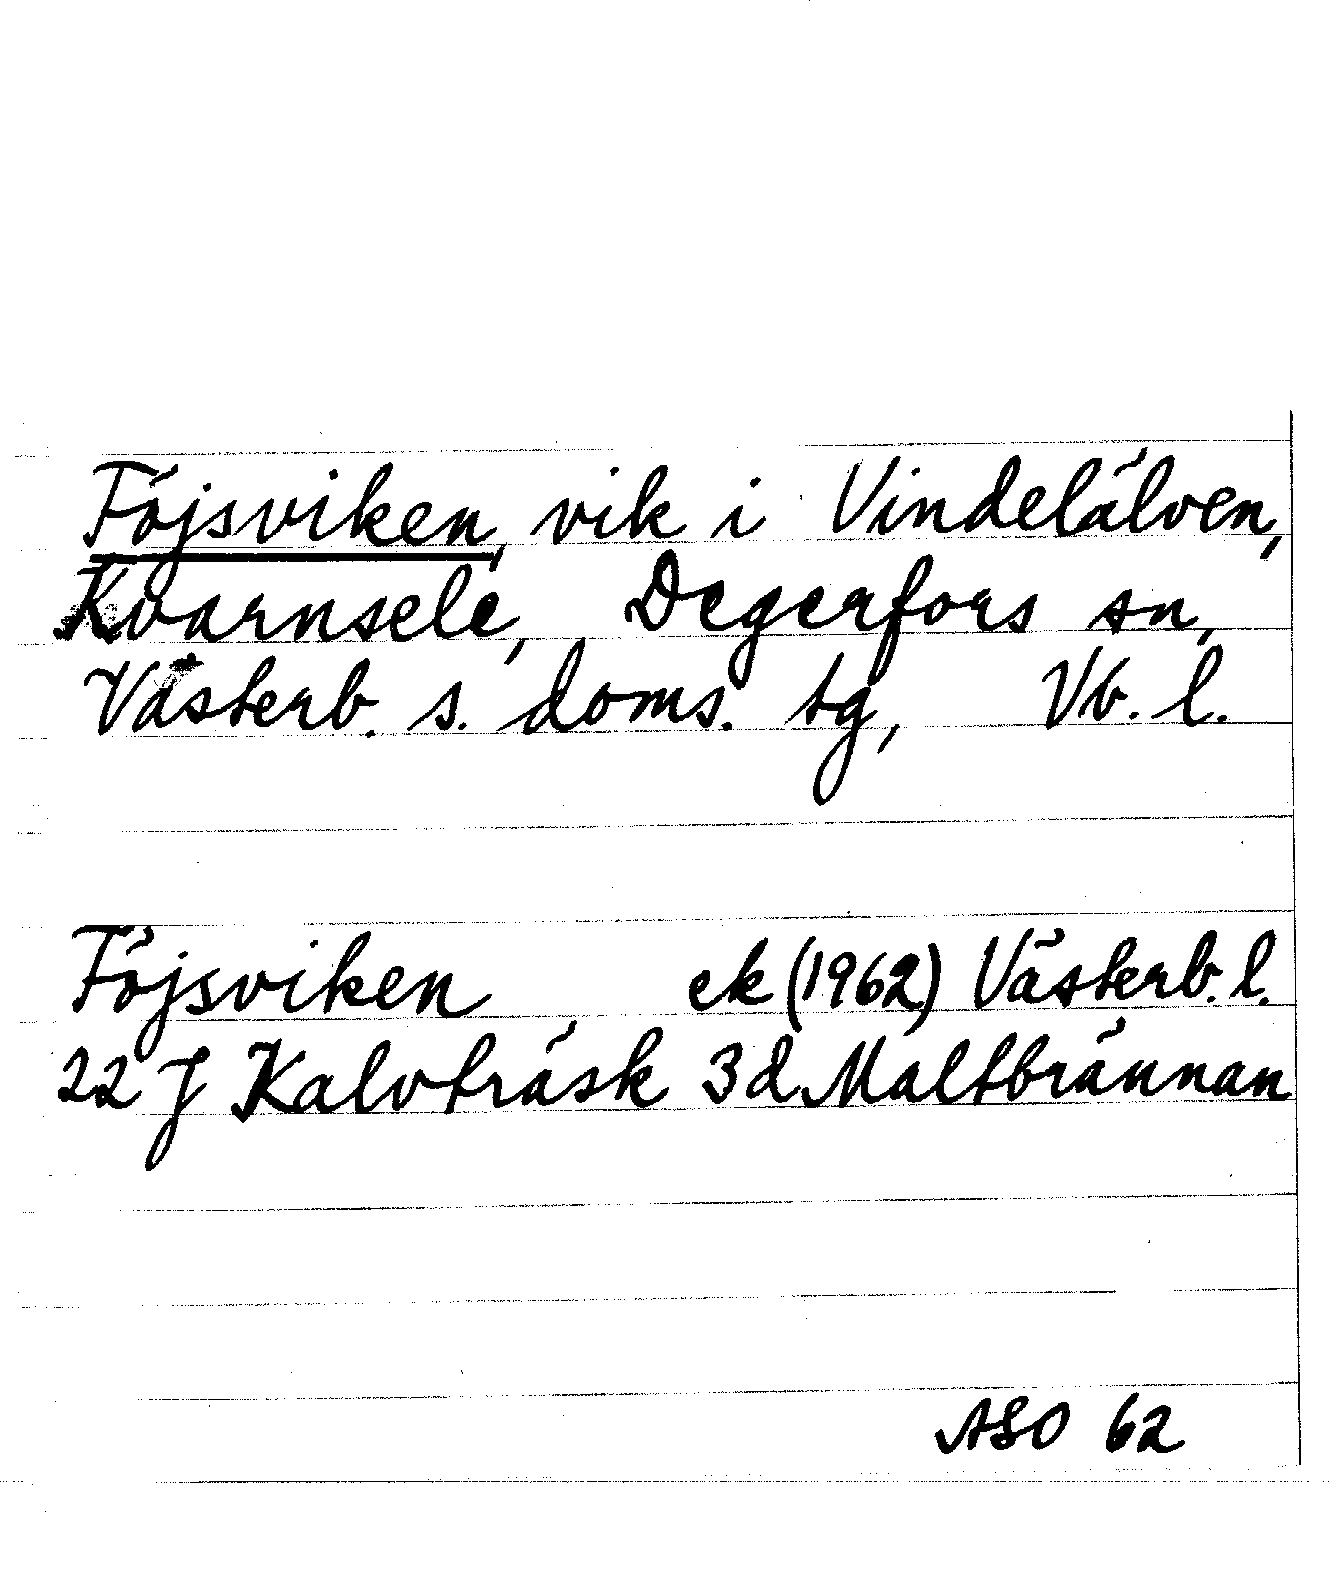 Föjsviken, vik i Vindelälven,
Kvarnsele, Degerfors sn,
Västerb. s. doms. tg, Vb. l.
Föjsviken ek (1962) Västerb. l.
22 J Kalvträsk 3d Maltbrännan
ASO 62